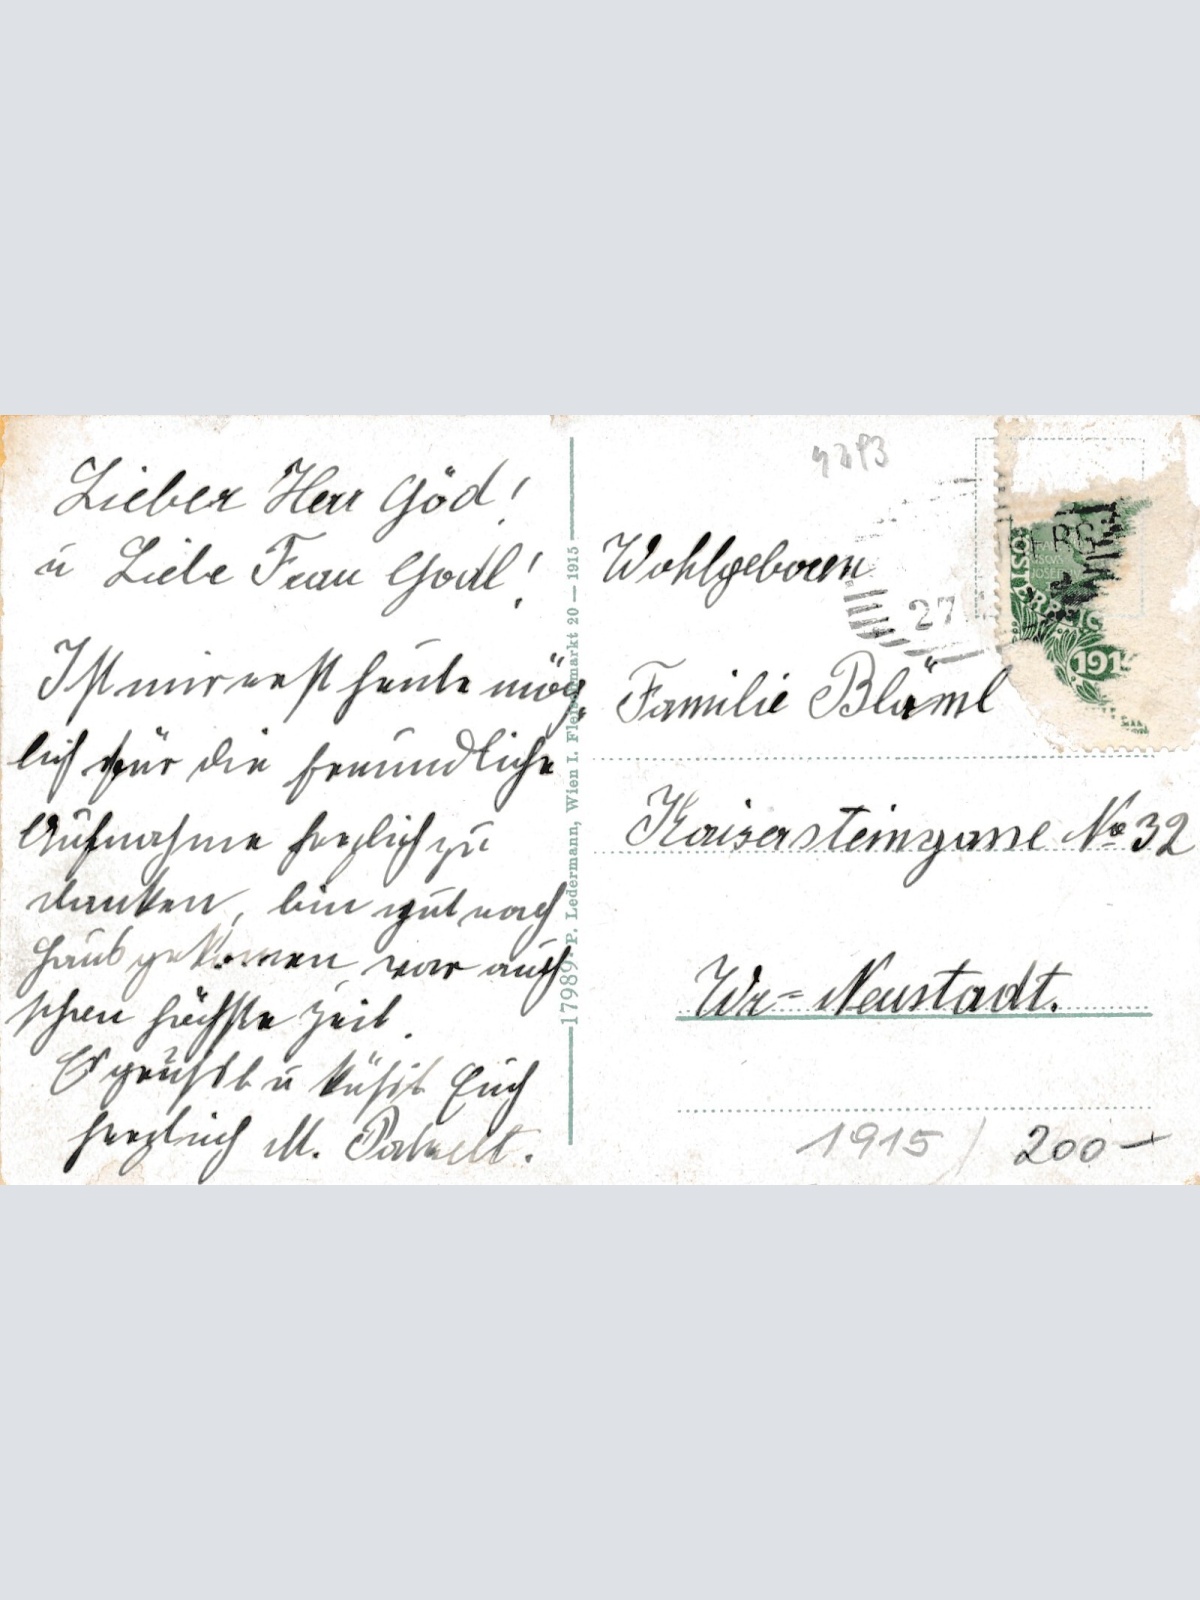 Lieber Herr Göd!
u Liebe Frau Godl!
Ist mir erst heute mög-
lich für die freundliche
Aufnahme herzlich zu
danken, bin gut nach
Haus gekomen war auch
schon höchste Zeit.
Es grüßt u küßt Euch
herzlich M.
17989 P. Ledermann, Wien I. Fleischmarkt 20 — 1915
4393
Wohlgeboren
Familie Bläml
Kaisersteingasse No 32
Wr= Neustadt.
27
ÖSTERREICH
1914
1915 / 200—